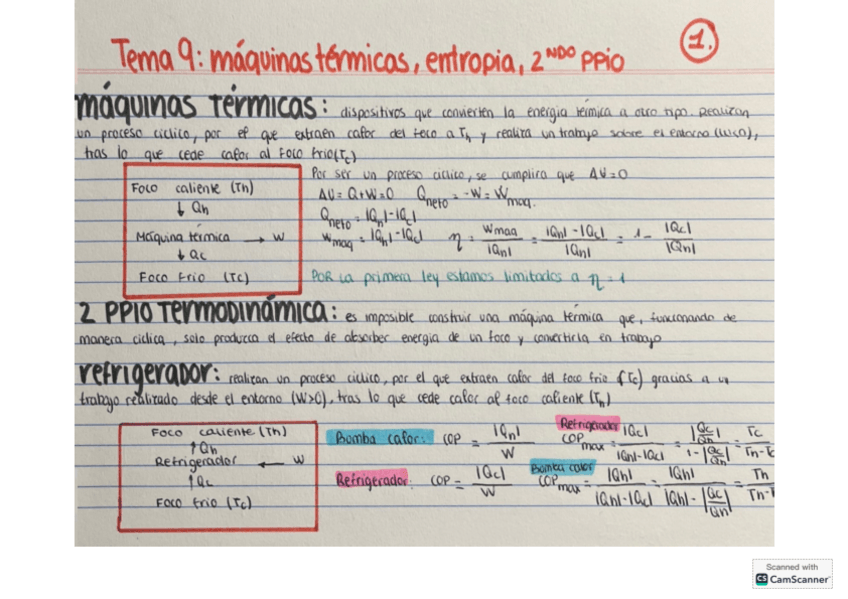 1.
Tema 9: máquinas térmicas, entropia, 2ᴺᴰᴼ PPio
máquinas térmicas: dispositivos que convierten la energia térmica a otro tipo. Realizan
un proceso ciclico, por el que extraen calor del foco a Th y realiza un trabajo sobre el entorno (W<0),
tras lo que cede calor al Foco frio (Tc)
Foco caliente (Th)
↓ Qh
Máquina térmica → W
↓ Qc
Foco Frio (Tc)
Por ser un proceso ciclico, se cumplira que ΔU=0
ΔU = Q+W=0 Qneto = -W = Wmaq.
Qneto = |Qh|-|Qc|
Wmaq = |Qh|-|Qc| η = Wmaq/|Qh| = |Qh|-|Qc|/|Qh| = 1 - |Qc|/|Qh|
POR La primera ley estamos limitados a η = 1
2 PPIO Termodinámica: es imposible construir una máquina térmica que, funcionando de
manera ciclica, solo produzca el efecto de absorber energia de un foco y convertirla en trabajo
refrigerador: realizan un proceso ciclico, por el que extraen calor del foco frio (Tc) gracias a un
trabajo realizado desde el entorno (W>0), tras lo que cede calor al foco caliente (Th)
Foco caliente (Th)
↑ Qh
Refrigerador ← W
↑ Qc
Foco frio (Tc)
Bomba calor: COP = |Qh|/W
Refrigerador COPmax = |Qc|/|Qh|-|Qc| = |Qc/Qh|/1-|Qc/Qh| = Tc/Th-Tc
Refrigerador: COP = |Qc|/W
Bomba calor COPmax = |Qh|/|Qh|-|Qc| = |Qh|/|Qh|-|Qc/Qh| = Th/Th-T
Scanned with
CS CamScanner